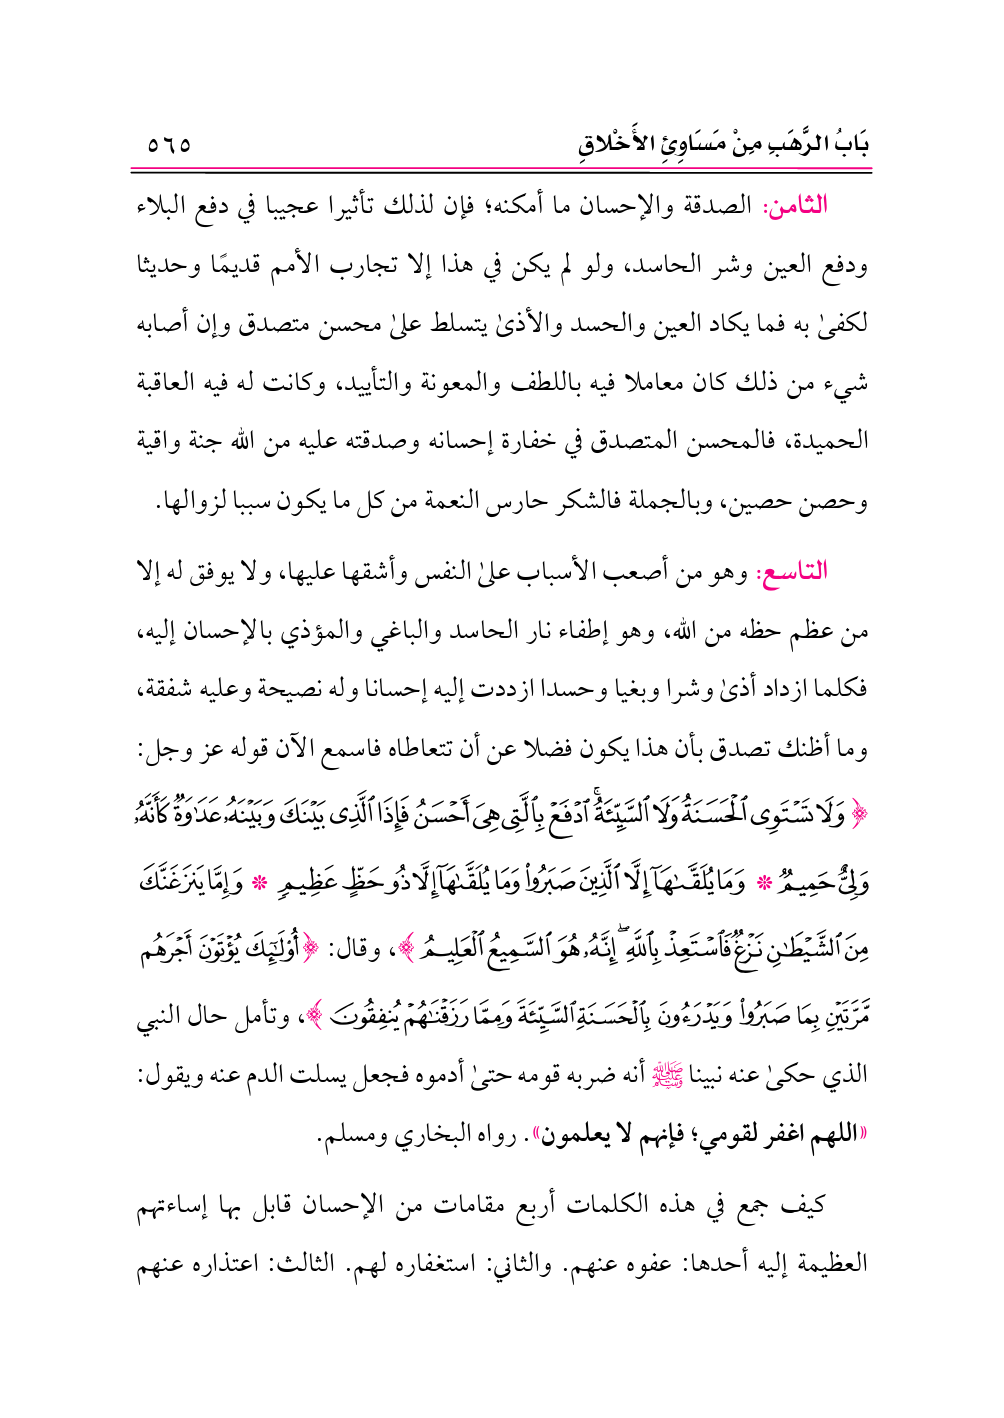 بَابُ الرَّهَبِ مِنْ مَسَاوِئِ الأَخْلاقِ ٥٦٥
الثامن: الصدقة والإحسان ما أمكنه؛ فإن لذلك تأثيرا عجيبا في دفع البلاء
ودفع العين وشر الحاسد، ولو لم يكن في هذا إلا تجارب الأمم قديمًا وحديثا
لكفىٰ به فما يكاد العين والحسد والأذىٰ يتسلط علىٰ محسن متصدق وإن أصابه
شيء من ذلك كان معاملا فيه باللطف والمعونة والتأييد، وكانت له فيه العاقبة
الحميدة، فالمحسن المتصدق في خفارة إحسانه وصدقته عليه من الله جنة واقية
وحصن حصين، وبالجملة فالشكر حارس النعمة من كل ما يكون سببا لزوالها.
التاسع: وهو من أصعب الأسباب علىٰ النفس وأشقها عليها، ولا يوفق له إلا
من عظم حظه من الله، وهو إطفاء نار الحاسد والباغي والمؤذي بالإحسان إليه،
فكلما ازداد أذىٰ وشرا وبغيا وحسدا ازددت إليه إحسانا وله نصيحة وعليه شفقة،
وما أظنك تصدق بأن هذا يكون فضلا عن أن تتعاطاه فاسمع الآن قوله عز وجل:
﴿وَلَا تَسْتَوِى ٱلْحَسَنَةُ وَلَا ٱلسَّيِّئَةُ ۚ ٱدْفَعْ بِٱلَّتِى هِىَ أَحْسَنُ فَإِذَا ٱلَّذِى بَيْنَكَ وَبَيْنَهُۥ عَدَٰوَةٌ كَأَنَّهُۥ
وَلِىٌّ حَمِيمٌ * وَمَا يُلَقَّىٰهَآ إِلَّا ٱلَّذِينَ صَبَرُوا۟ وَمَا يُلَقَّىٰهَآ إِلَّا ذُو حَظٍّ عَظِيمٍ * وَإِمَّا يَنزَغَنَّكَ
مِنَ ٱلشَّيْطَٰنِ نَزْغٌ فَٱسْتَعِذْ بِٱللَّهِ ۖ إِنَّهُۥ هُوَ ٱلسَّمِيعُ ٱلْعَلِيمُ﴾، وقال: ﴿أُو۟لَٰٓئِكَ يُؤْتَوْنَ أَجْرَهُم
مَّرَّتَيْنِ بِمَا صَبَرُوا۟ وَيَدْرَءُونَ بِٱلْحَسَنَةِ ٱلسَّيِّئَةَ وَمِمَّا رَزَقْنَٰهُمْ يُنفِقُونَ﴾، وتأمل حال النبي
الذي حكىٰ عنه نبينا ﷺ أنه ضربه قومه حتىٰ أدموه فجعل يسلت الدم عنه ويقول:
«اللهم اغفر لقومي؛ فإنهم لا يعلمون». رواه البخاري ومسلم.
كيف جمع في هذه الكلمات أربع مقامات من الإحسان قابل بها إساءتهم
العظيمة إليه أحدها: عفوه عنهم. والثاني: استغفاره لهم. الثالث: اعتذاره عنهم